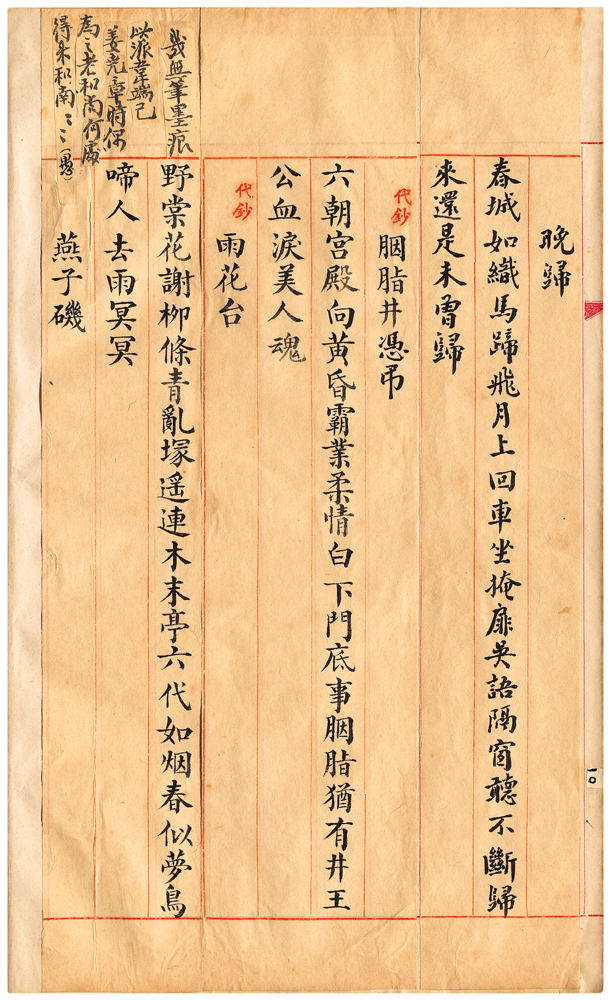 晚歸
春城如織馬蹄飛月上回車坐掩扉吳語隔窗聽不斷歸
來還是未曾歸
代鈔
胭脂井憑弔
六朝宮殿向黃昏霸業柔情白下門底事胭脂猶有井王
公血淚美人魂
代鈔
雨花台
野棠花謝柳條青亂塚遥連木末亭六代如烟春似夢鳥
啼人去雨冥冥
燕子磯
幾無筆墨痕
此派韋端己
姜堯章時偶
為之老和尚何處
得來和南〻〻
10